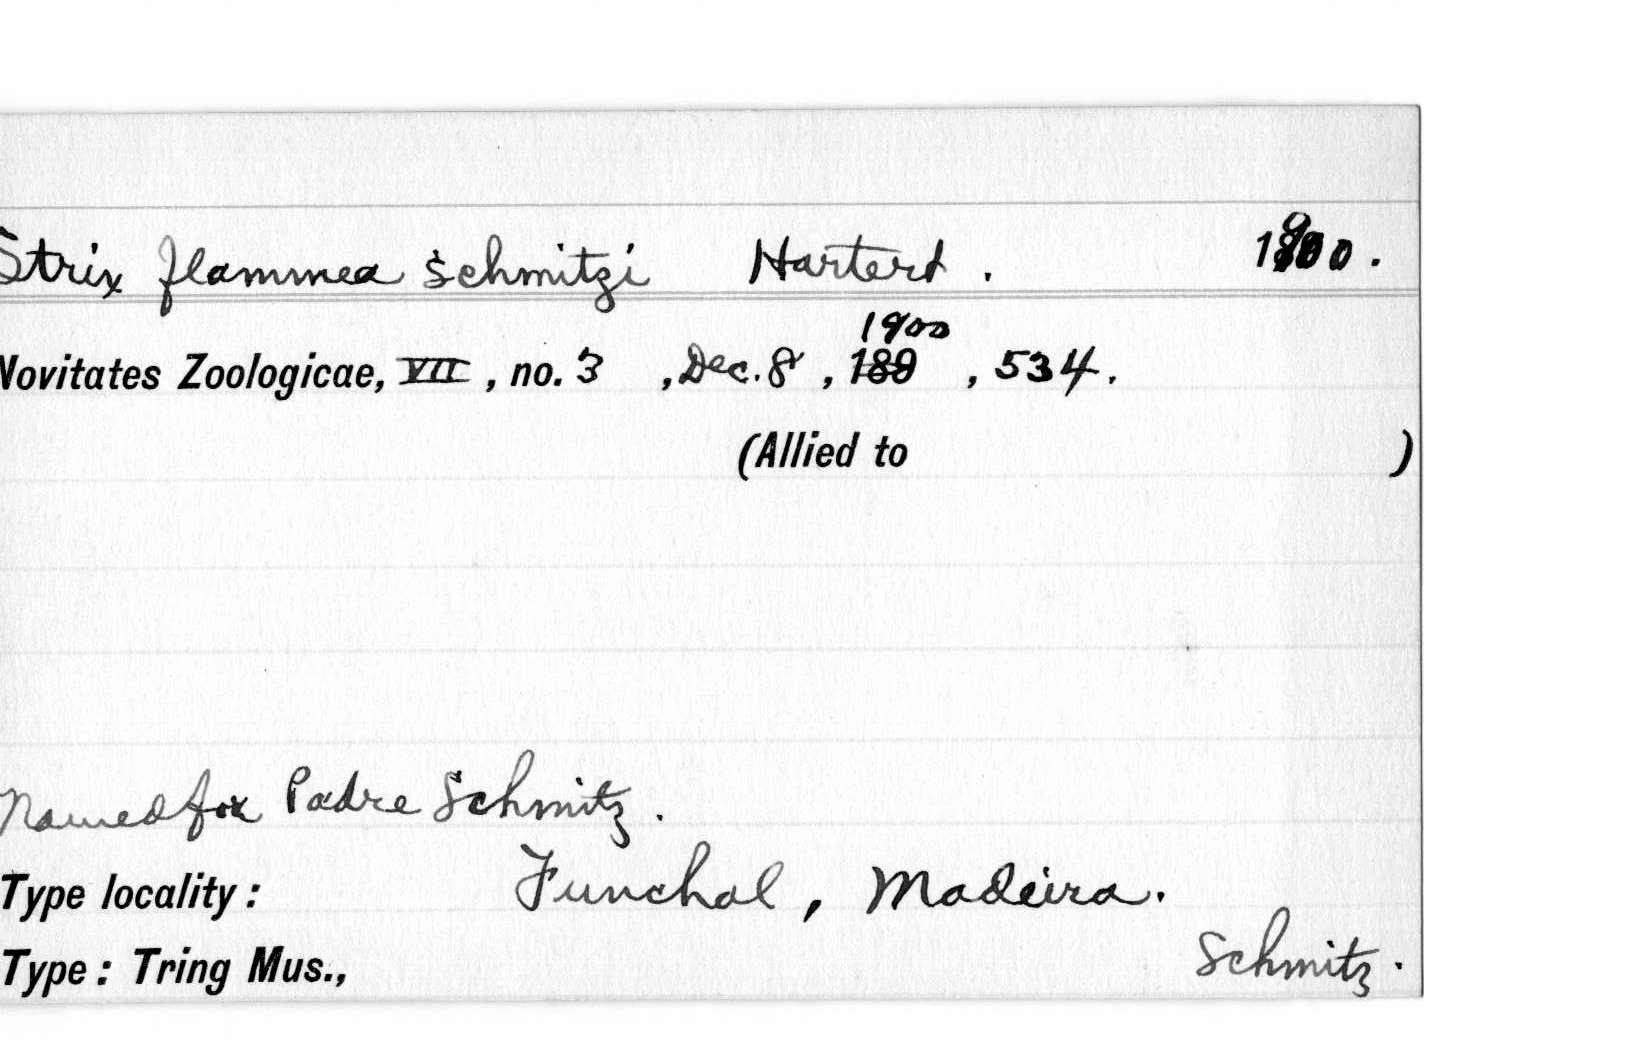 Strix flammea schmitzi Hartert. 1900.
1900
Novitates Zoologicae, VII, no. 3, Dec. 8, 189, 534.
(Allied to )
Named for Padre Schmitz.
Type locality: Funchal, Madeira.
Type: Tring Mus., Schmitz.